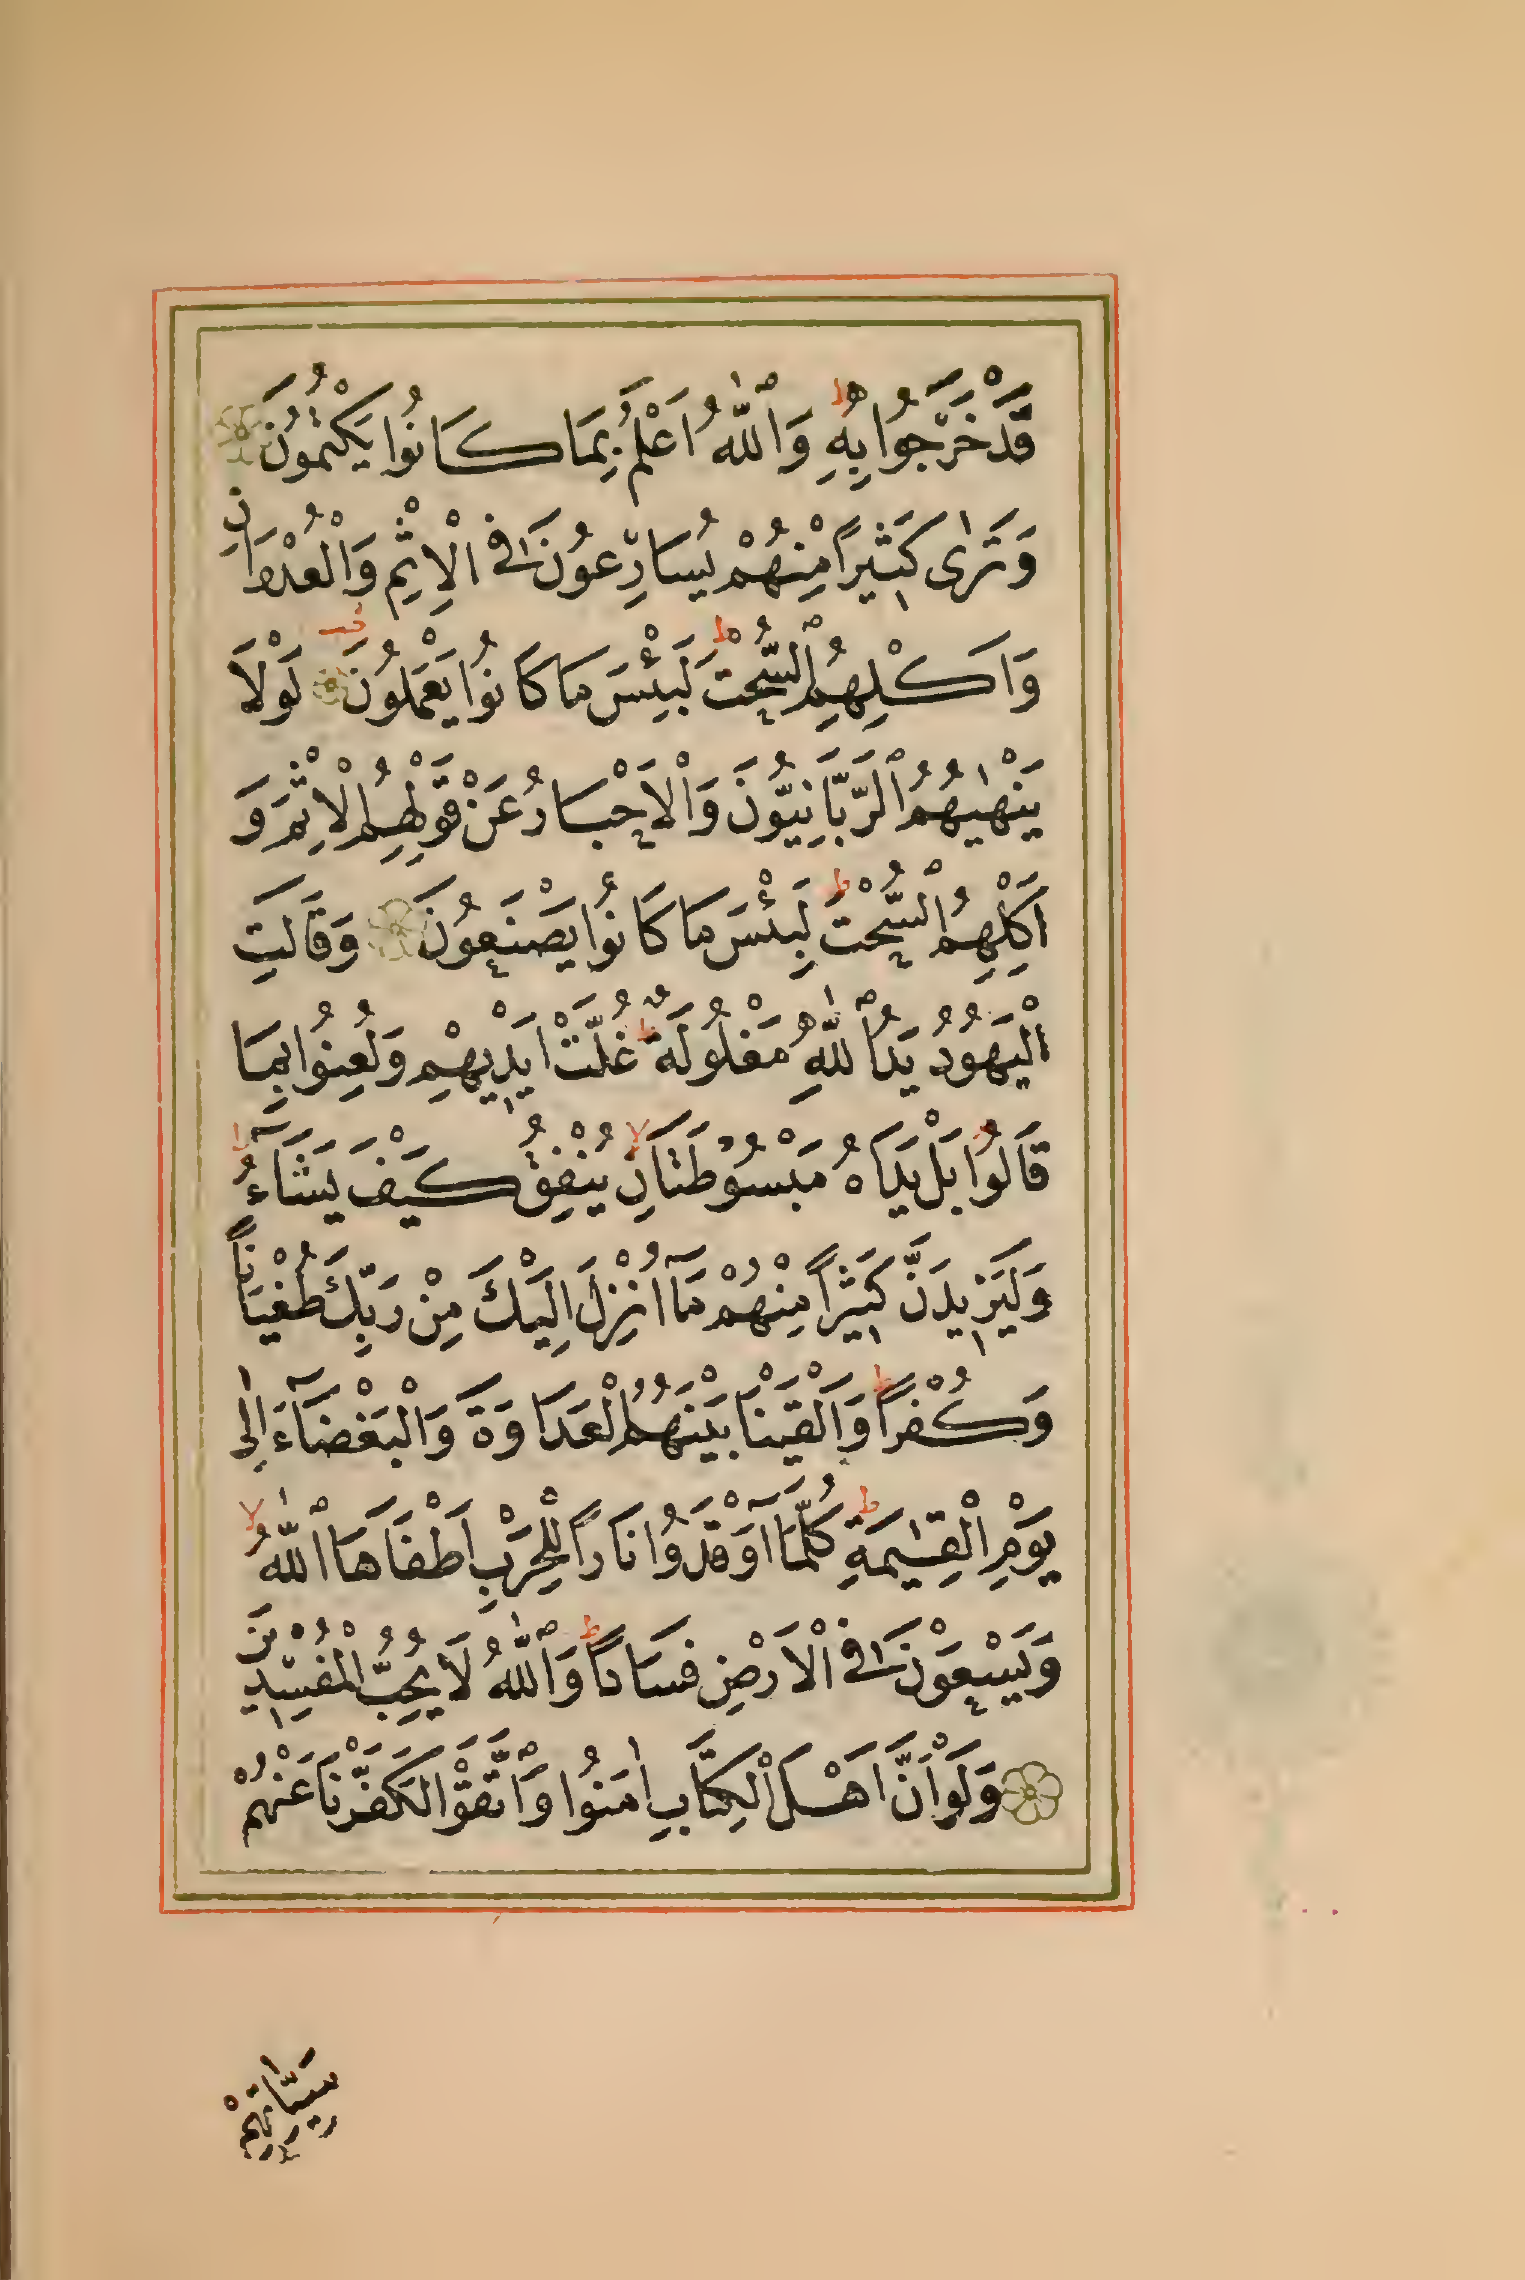 قَدْ خَرَجُوا بِهِ ط وَاللّٰهُ اَعْلَمُ بِمَا كَانُوا يَكْتُمُونَ
وَتَرٰى كَثِيرًا مِنْهُمْ يُسَارِعُونَ فِي الْاِثْمِ وَالْعُدْوَانِ
وَاَكْلِهِمُ السُّحْتَ ط لَبِئْسَ مَا كَانُوا يَعْمَلُونَ لَوْلَا
يَنْهٰيهُمُ الرَّبَّانِيُّونَ وَالْاَحْبَارُ عَنْ قَوْلِهِمُ الْاِثْمَ وَ
اَكْلِهِمُ السُّحْتَ ط لَبِئْسَ مَا كَانُوا يَصْنَعُونَ وَقَالَتِ
الْيَهُودُ يَدُ اللّٰهِ مَغْلُولَةٌ ط غُلَّتْ اَيْدِيهِمْ وَلُعِنُوا بِمَا
قَالُوا بَلْ يَدَاهُ مَبْسُوطَتَانِ لا يُنْفِقُ كَيْفَ يَشَآءُ ط
وَلَيَزِيدَنَّ كَثِيرًا مِنْهُمْ مَآ اُنْزِلَ اِلَيْكَ مِنْ رَبِّكَ طُغْيَانًا
وَكُفْرًا ط وَاَلْقَيْنَا بَيْنَهُمُ الْعَدَاوَةَ وَالْبَغْضَآءَ اِلٰى
يَوْمِ الْقِيٰمَةِ ط كُلَّمَآ اَوْقَدُوا نَارًا لِلْحَرْبِ اَطْفَاَهَا اللّٰهُ لا
وَيَسْعَوْنَ فِي الْاَرْضِ فَسَادًا ط وَاللّٰهُ لَا يُحِبُّ الْمُفْسِدِينَ
وَلَوْ اَنَّ اَهْلَ الْكِتَابِ اٰمَنُوا وَاتَّقَوْا لَكَفَّرْنَا عَنْهُمْ
سَيِّـَٔاتِهِمْ